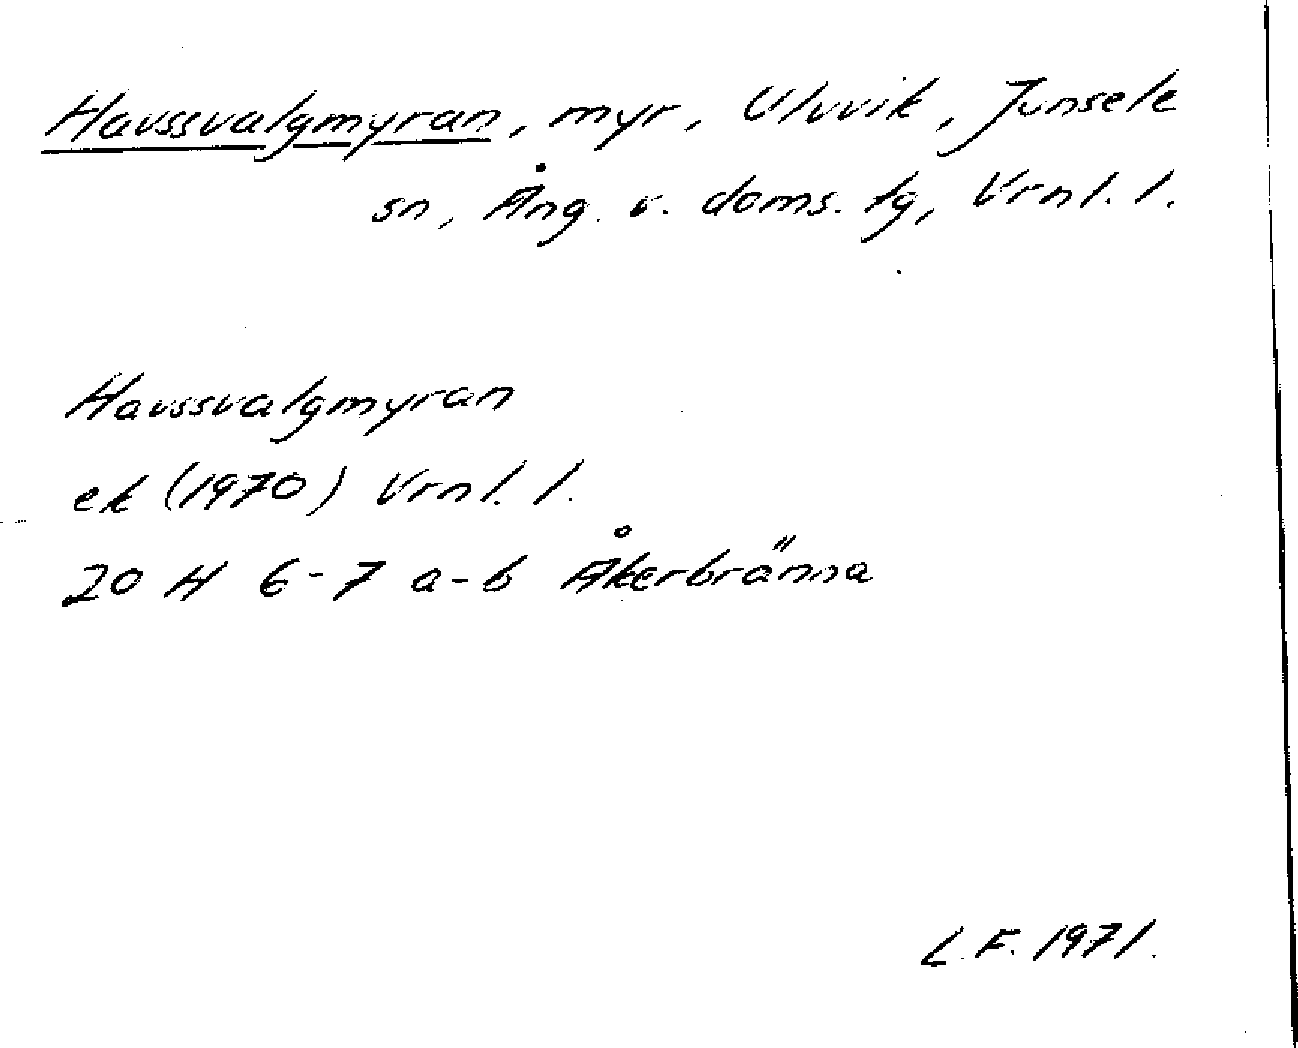 Havssvalgmyran, myr, Uluvik, Junsele
sn, Ång. v. doms. tg, Vrnl. l.
Havssvalgmyran
ek (1970) Vrnl. l.
20 H 6-7 a-b Åkerbränna
L. F. 1971.